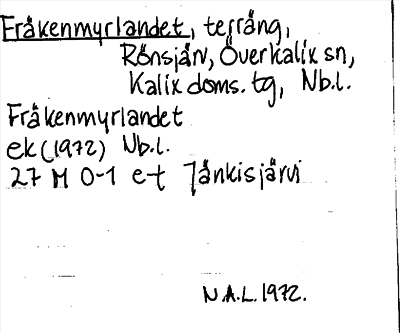 Fråkenmyrlandet, terräng,
Rönsjärv, Överkalix sn,
Kalix doms. tg, Nb.l.
Fråkenmyrlandet
ek (1972) Nb.l.
27 M 0-1 e-t Jänkisjärvi
N.A.L. 1972.